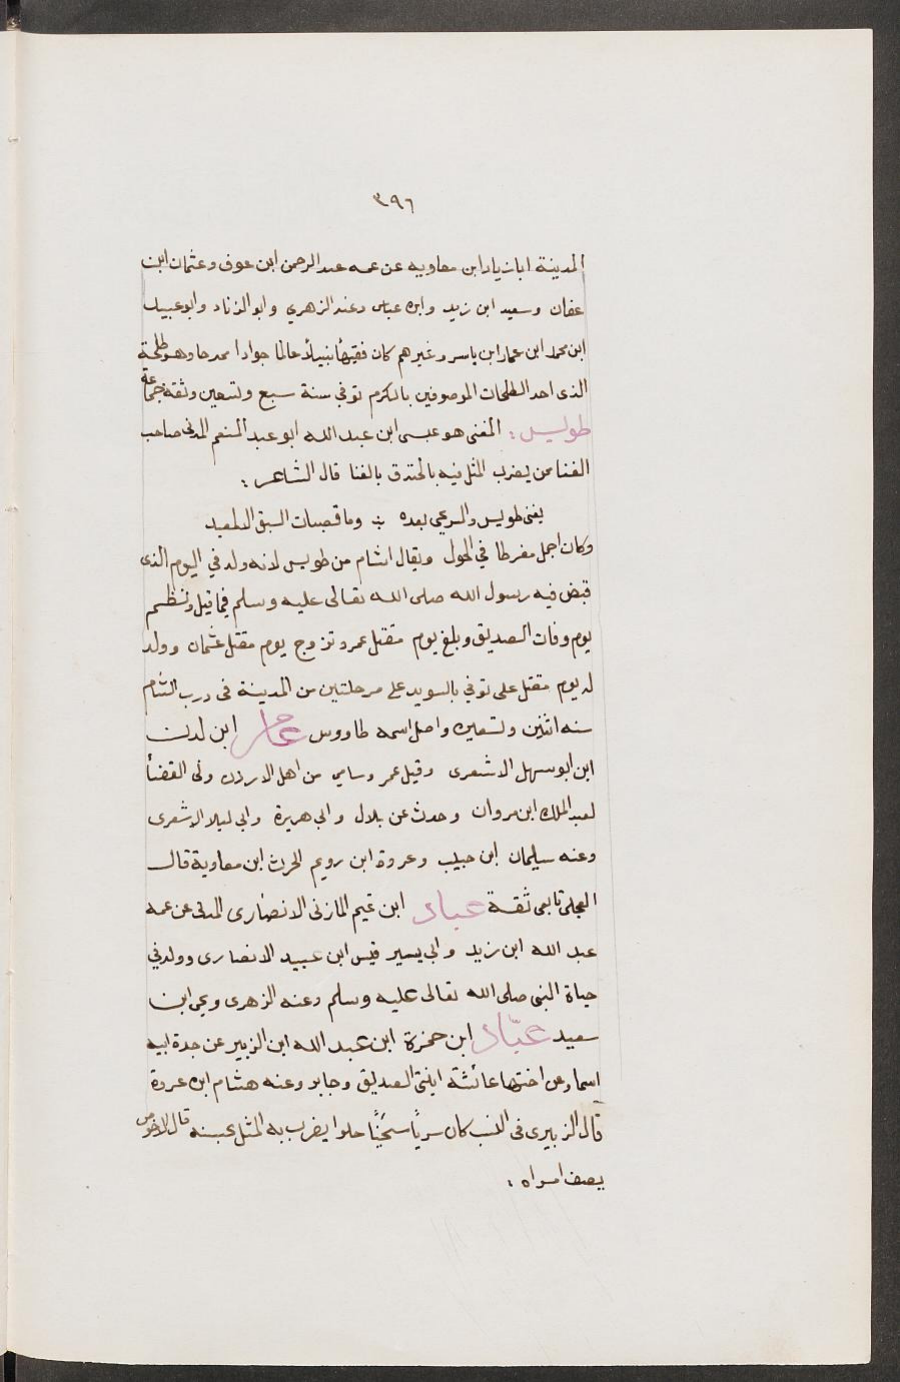 ٣٩٦
المدينة ابان زياد ابن معاويه عن عمه عبد الرحمن ابن عوف وعثمان ابن
عفان وسعيد ابن زيد وابن عباس وعند الزهري وابو الزناد وابو عبيد
ابن محمد ابن عمار ابن ياسر وغيرهم كان فقيهاً نبيلاً عالما جوادا ممدحا وهو طلحة
الذى احد الطلحات الموصوفين بالكرم توفي سنة سبع وتسعين وثقه جماعة
طويس: المغنى هو عيسى ابن عبد الله ابو عبد المنعم المدنى صاحب
الغنا ممن يضرب المثل فيه بالحذق بالغنا قال الشاعر:
يغنى طويس والسرعي بعده ÷ وما قصبات السبق الا لمعبد
وكان اجمل مفرطا في الحول ويقال اشام من طويس لانه ولد في اليوم الذى
قبض فيه رسول الله صلى الله تعالى عليه وسلم فيما قيل وفطم
يوم وفات الصديق وبلغ يوم مقتل عمر وتزوج يوم مقتل عثمان وولد
له يوم مقتل على توفي بالسويد على مرحلتين من المدينة فى درب الشام
سنه اثنين وتسعين واصل اسمه طاووس عامر ابن لدن
ابن ابو سهل الاشعرى وقيل عمر وسامي من اهل الاردن ولى القضأ
لعبد الملك ابن مروان وحدث عن بلال وابى هريرة وابى ليلا الاشعرى
وعنه سليمان ابن حبيب وعروة ابن رويم الحرث ابن معاوية قال
العجلى تابعى ثقة عباد ابن تميم المازنى الانصارى المدنى عن عمه
عبد الله ابن زيد وابى بسير قيس ابن عبيد الانصارى وولد في
حياة النبى صلى الله تعالى عليه وسلم وعنه الزهرى ويحيى ابن
سعيد عبّاد ابن حمزة ابن عبد الله ابن الزبير عن جدة ابيه
اسما وعن اختها عائشة ابنتى الصديق وجابر وعنه هشام ابن عروة
قال الزبيرى فى النسب كان سرياً سخيّاً حلوا يضرب به المثل بحسنه قال الاخوص
يصف امراه: